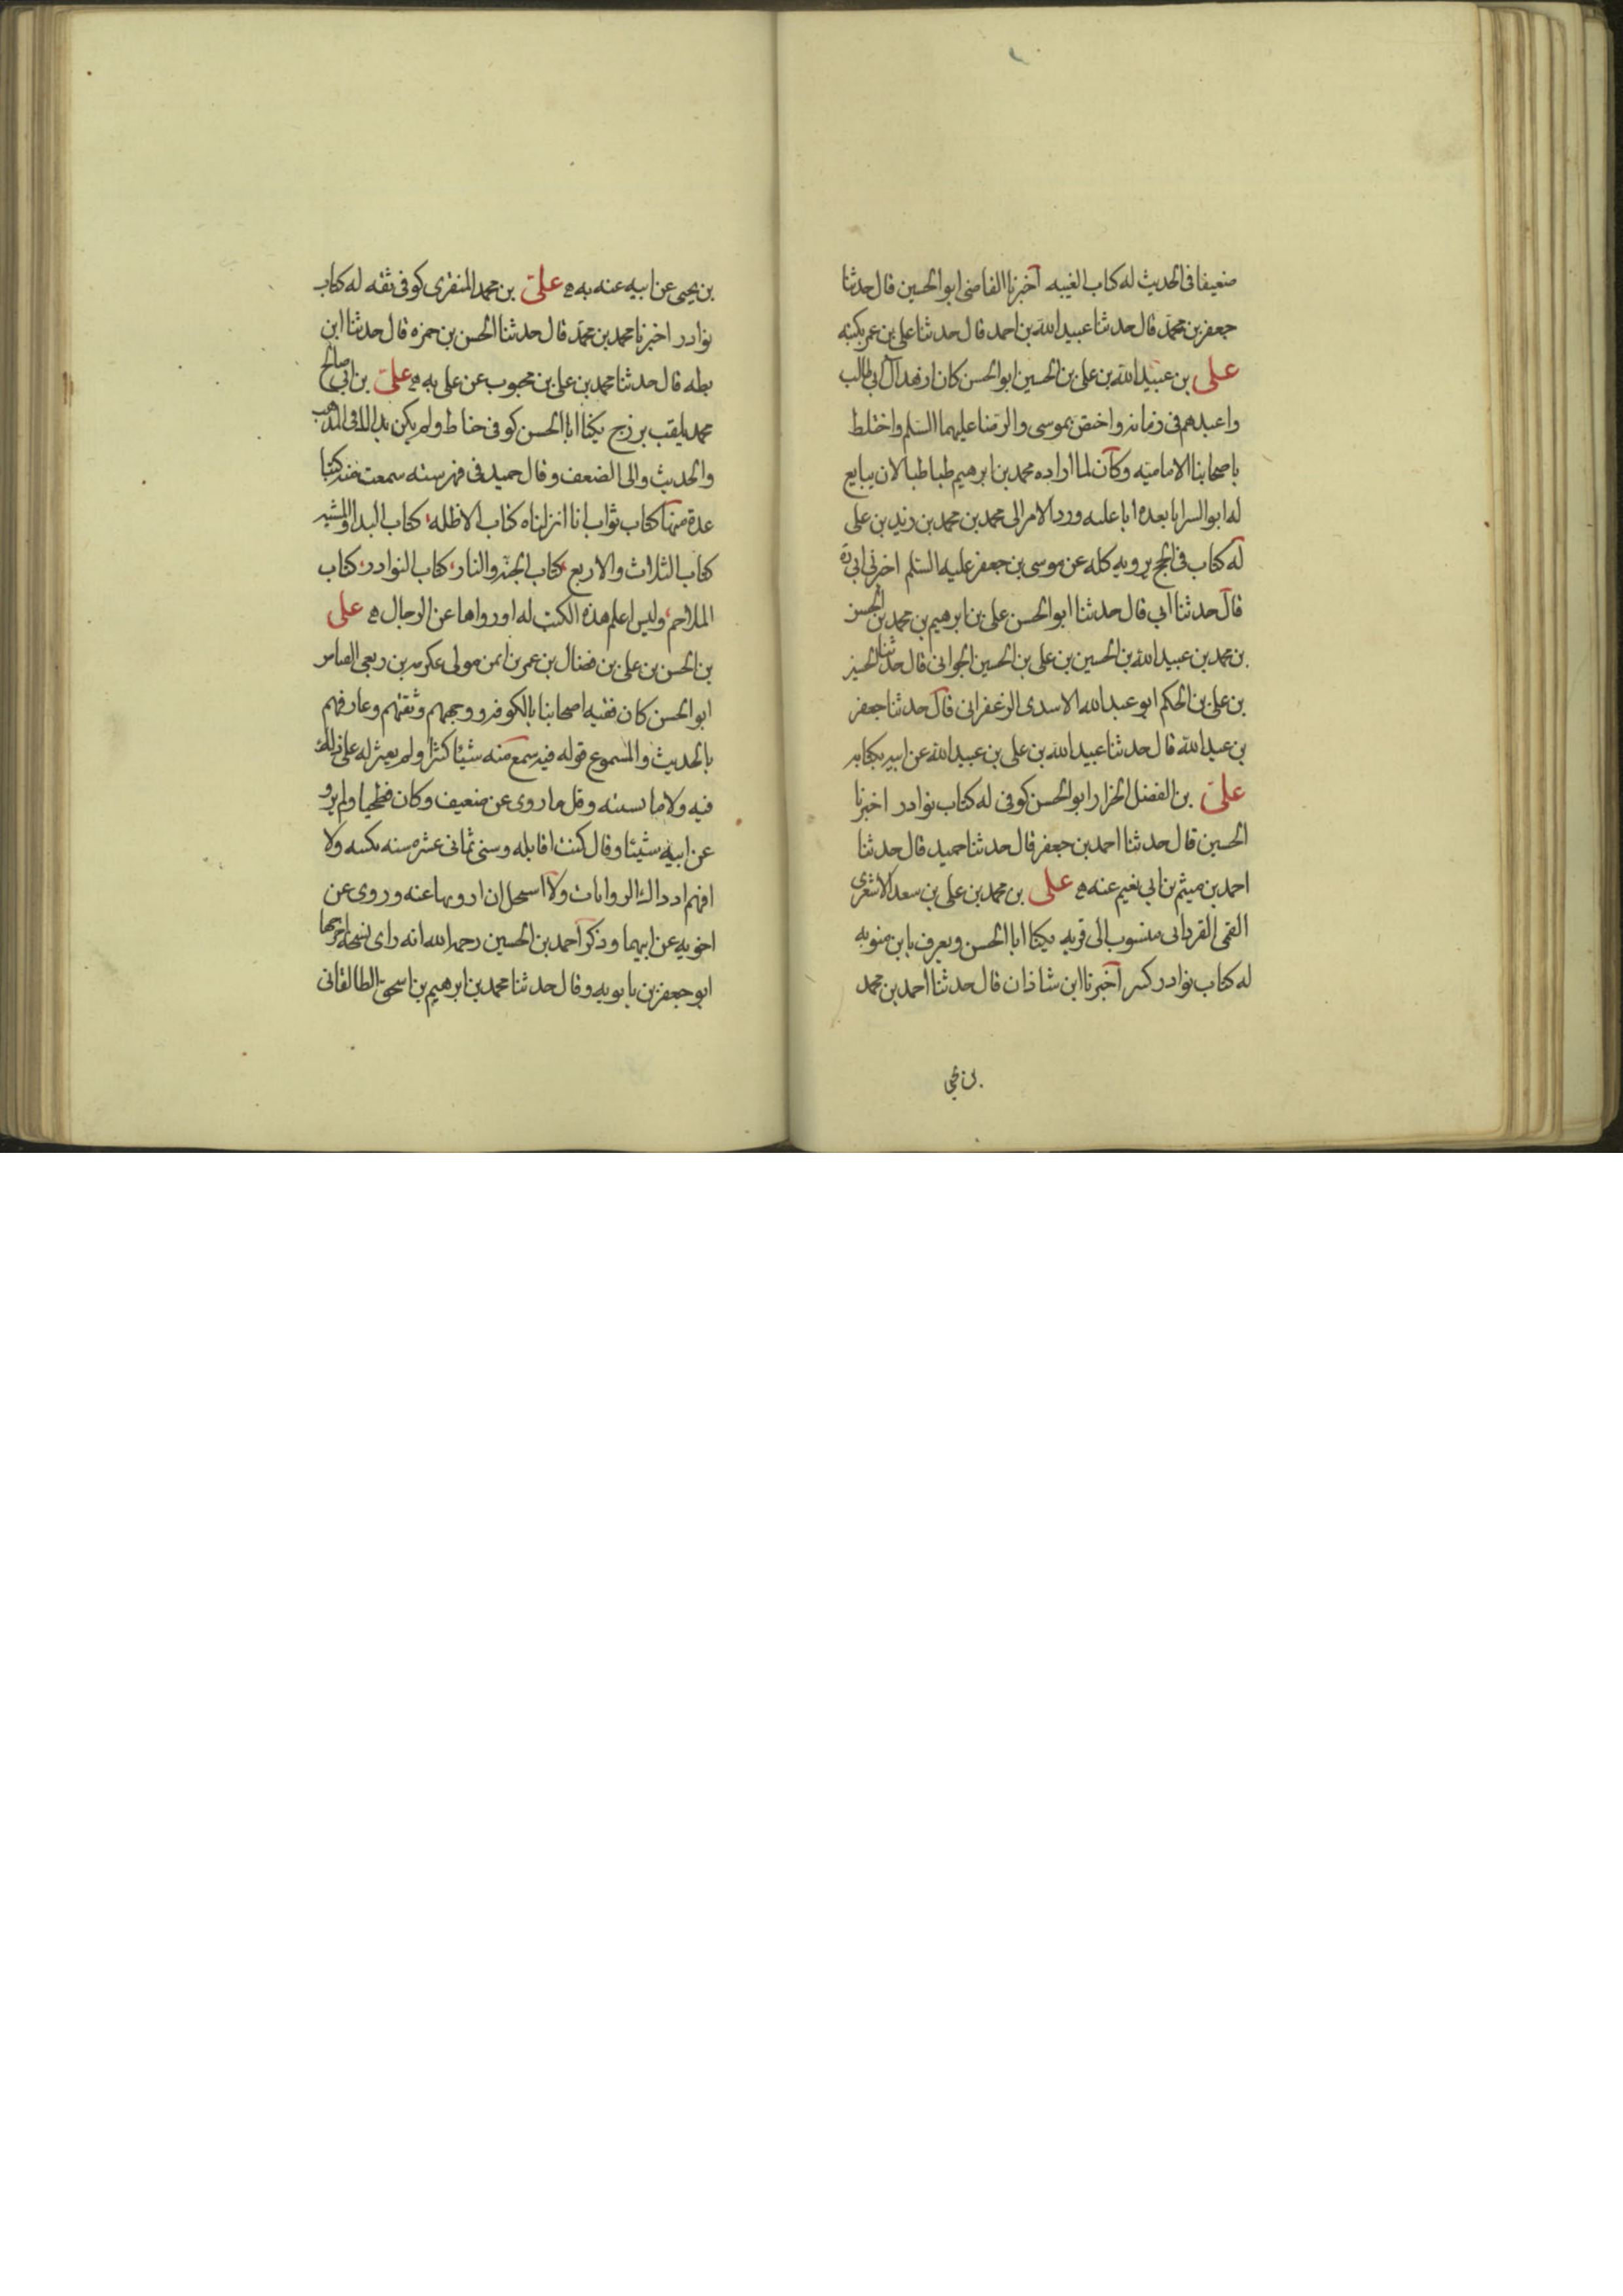 ضعيفا فى الحديث له كتاب الغيبه اخبرنا القاضى ابو الحسين قال حدثنا
جعفر بن محمد قال حدثنا عبيد الله بن احمد قال حدثنا على بن عمر بكتبه
على بن عبيد الله بن على بن الحسين ابو الحسن كان ازهد آل ابى طالب
واعبدهم فى زمانه واختص بموسى والرضا عليهما السلم واختلط
باصحابنا الاماميه وكان لما اراده محمد بن ابرهيم طباطبا لان يبايع
له ابو السرايا بعده ابا عليه ورد الامر الى محمد بن محمد بن زيد بن على
له كتاب فى الحج يرويه كله عن موسى بن جعفر عليه السلم اخبرنى ابى ره
قال حدثنا ابى قال حدثنا ابو الحسن على بن ابرهيم بن محمد بن الحسن
بن محمد بن عبيد الله بن الحسين بن على بن الحسين الجوانى قال حدثنا الحسين
بن على بن الحكم ابو عبد الله الاسدى الزعفرانى قال حدثنا جعفر
بن عبد الله قال حدثنا عبيد الله بن على بن عبيد الله عن ابيه بكتابه
على بن الفضل الخزار ابو الحسن كوفى له كتاب نوادر اخبرنا
الحسين قال حدثنا احمد بن جعفر قال حدثنا حميد قال حدثنا
احمد بن ميثم بن ابى نعيم عنه ه على بن محمد بن على بن سعد الاشعرى
القمى القردانى منسوب الى قريه يكنا ابا الحسن ويعرف بابن متويه
له كتاب نوادر كبير اخبرنا ابن شاذان قال حدثنا احمد بن محمد
بن يحيى
بن يحيى عن ابيه عنه به ه على بن محمد المنقرى كوفى ثقه له كتاب
نوادر اخبرنا محمد بن محمد قال حدثنا الحسن بن حمزه قال حدثنا ابن
بطه قال حدثنا محمد بن على بن محبوب عن على به ه على بن ابى صالح
محمد يلقب بزرج يكنا ابا الحسن كوفى حناط ولم يكن بذاك فى المذهب
والحديث والى الضعف وقال حميد فى فهرسته سمعت منه كتبا
عدة منها كتاب ثواب انا انزلناه كتاب الاظله كتاب البدا والمشيه
كتاب الثلاث والاربع كتاب الجنه والنار كتاب النوادر كتاب
الملاحم وليس اعلم هذه الكتب له او رواها عن الرجال ه على
بن الحسن بن على بن فضال بن عمر بن ايمن مولى عكرمه بن ربعى الفياض
ابو الحسن كان فقيه اصحابنا بالكوفه ووجههم وثقتهم وعارفهم
بالحديث والمسموع قوله فيه سمع منه شيئا كثيرا ولم يعثر له على ذلك
فيه ولا ما يشينه وقل ما روى عن ضعيف وكان فطحيا ولم يرو
عن ابيه شيئا وقال كنت اقابله وسنى ثمانى عشره سنه بكتبه ولا
افهم اذ ذاك الروايات ولا استحل ان ارويها عنه وروى عن
اخويه عن ابيهما وذكر احمد بن الحسين رحمه الله انه راى نسخه اخرجها
ابو جعفر بن بابويه وقال حدثنا محمد بن ابرهيم بن اسحق الطالقانى